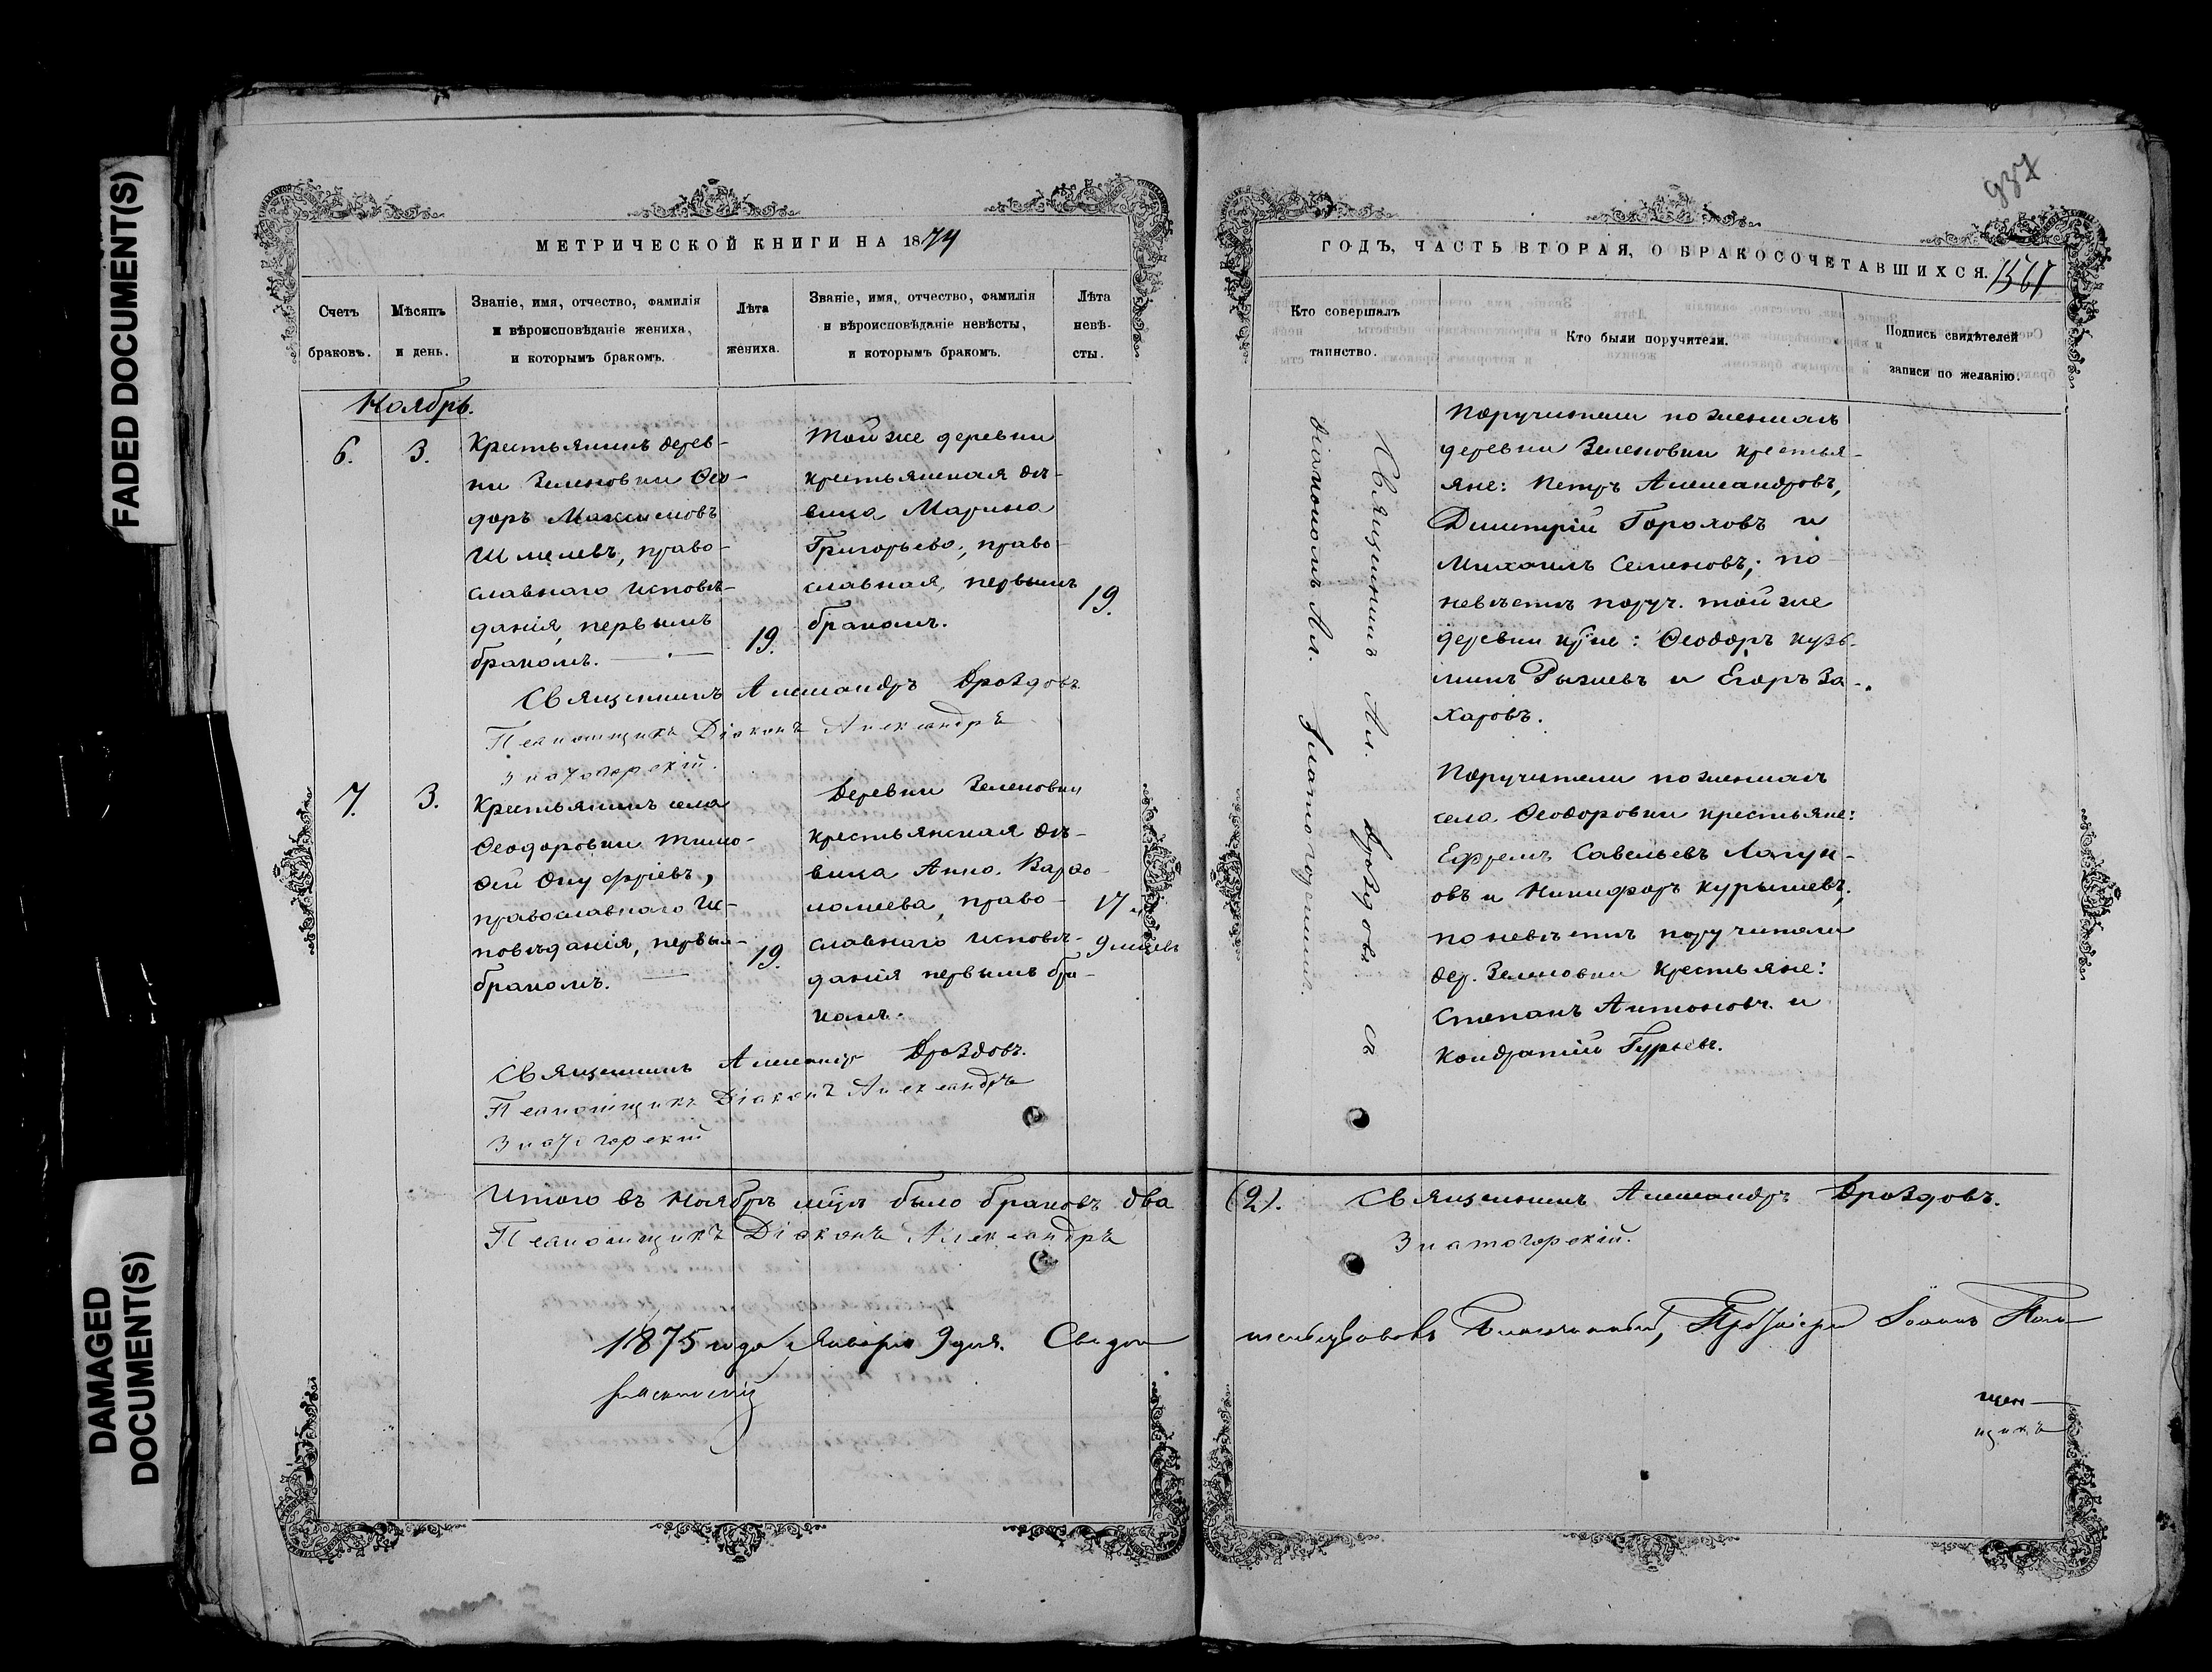 FADED DOCUMENT(S)
DAMAGED
DOCUMENT(S)
МЕТРИЧЕСКОЙ КНИГИ НА 1874
Счетъ
браковъ.
Мѣсяцъ
и день.
Званіе, имя, отчество, фамилія
и вѣроисповѣданіе жениха,
и которымъ бракомъ.
Лѣта
жениха.
Званіе, имя, отчество, фамилія
и вѣроисповѣданіе невѣсты,
и которымъ бракомъ.
Лѣта
невѣ-
сты.
Ноябрь.
6.
3.
Крестьянинъ дерев-
ни Зеленовки Ѳео-
доръ Максимовъ
Шмелевъ, право-
славнаго исповѣ-
данія, первымъ
бракомъ.
19.
Той же деревни
крестьянская дѣ-
вица Марина
Григорьева, право-
славная, первымъ
бракомъ.
19.
Священникъ Александръ Дроздовъ.
Псаломщикъ Діаконъ Александръ
Златогорскій.
7.
3.
Крестьянинъ села
Ѳеодоровки Тимо-
ѳей Онуфріевъ,
православнаго ис-
повѣданія, первым-
бракомъ.
19.
Деревни Зеленовки
крестьянская дѣ-
вица Анна Варѳо-
ломеева, право-
славнаго исповѣ-
данія первымъ бра-
комъ.
17
9 мцевъ
Священникъ Александръ Дроздовъ.
Псаломщикъ Діаконъ Александръ
Златогорскій
Итого въ Ноябрѣ мцѣ было браковъ два
Псаломщикъ Діаконъ Александръ
1875 года Января 9 дня. Свидѣ
937
ГОДЪ, ЧАСТЬ ВТОРАЯ, О БРАКОСОЧЕТАВШИХСЯ.
Кто совершалъ
таинство.
Кто были поручители.
Подпись свидѣтелей
записи по желанію.
Священникъ Ал. Дроздовъ съ
діакономъ Ал. Златогорскимъ.
Поручители по женихѣ
деревни Зеленовки крестья-
яне: Петръ Александровъ,
Димитрій Гороховъ и
Михаилъ Семеновъ; по
невѣстѣ поруч. той же
деревни кр̃не: Ѳеодоръ Кузь-
минъ Рыжевъ и Егоръ За-
харовъ.
Поручители по женихѣ
села Ѳеодоровки крестьяне:
Ефремъ Савельевъ Лагун-
овъ и Никифоръ Курышевъ,
по невѣстѣ поручители
дер. Зеленовки крестьяне:
Степанъ Антоновъ и
Кондратій Гурьевъ.
(2). Священникъ Александръ Дроздовъ.
Златогорскій.
тельствовалъ Благочинный, Протоіерей Іоаннъ
щен-
щикъ